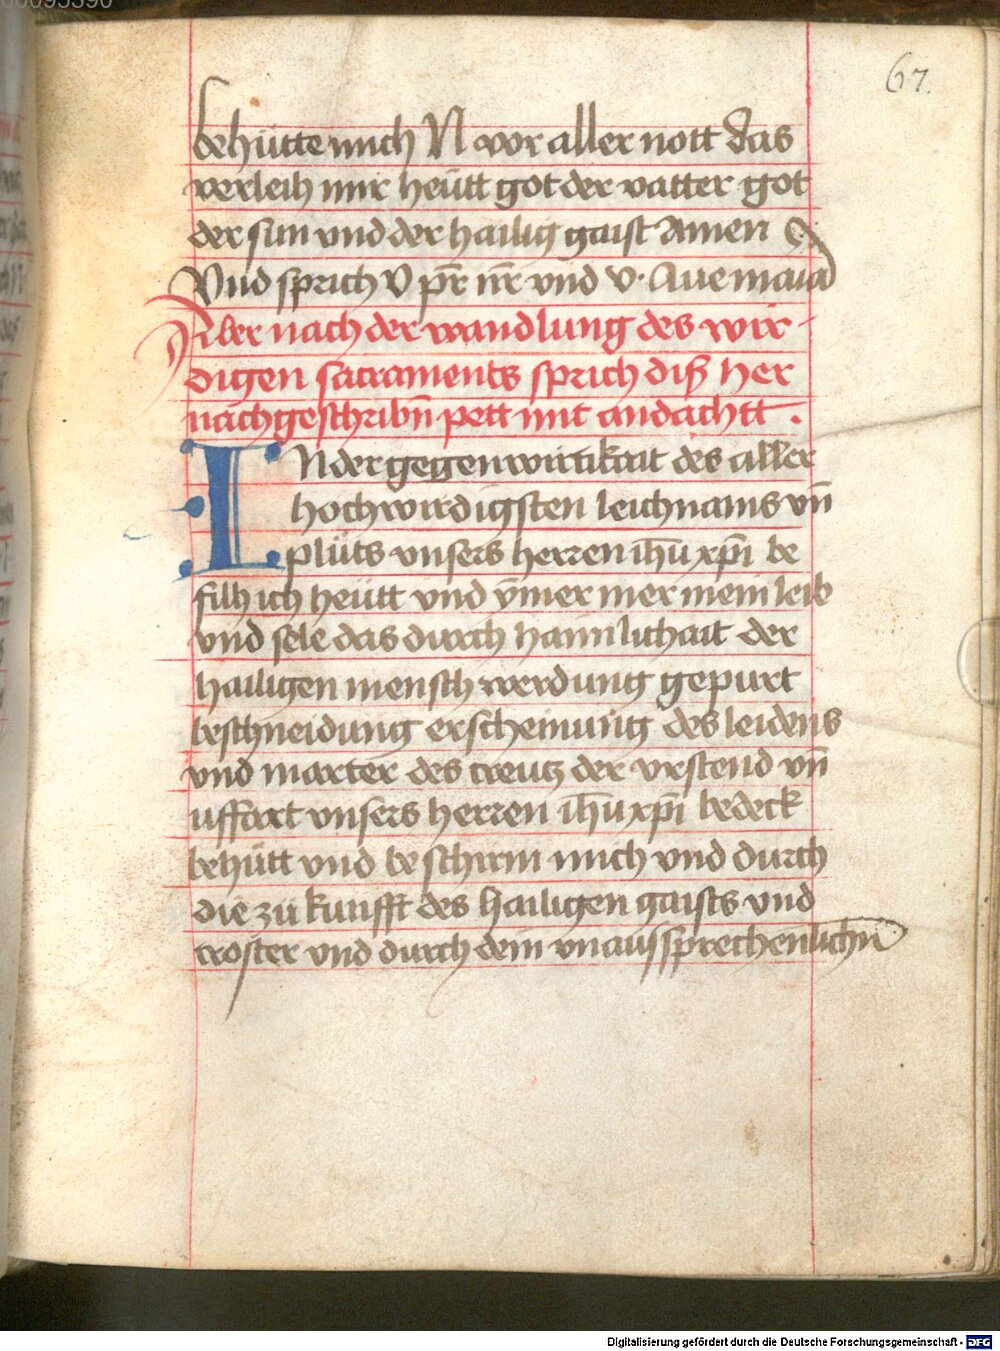 00095390
67.
behütte mich N vor aller nott das
verleih mir heütt got der vatter got
der sun vnd der hailig gaist Amen
Vnd sprich V pr̄ nr̄ vnd v· Aue maria
Aber nach der wandlung des wir-
digen sacraments sprich diß her
nachgeschribn̄ pett mit andachtt .
IN der gegenwirtikait des aller
hochwirdigsten leichnams vn̄
plüts vnsers herren ih̄u xp̄i be
filh ich heütt vnd ym̄er mer mein leib
vnd sele das durch haimlichait der
hailigen menschwerdung gepurt
beschneidung erscheinung des leidens
vnd marter des creutz der vrstend vn̄
uffart vnsers herren ih̄u xp̄i bedeck
behütt vnd beschirm mich vnd durch
die zü kunfft des hailigen gaists vnd
troster vnd durch dein vnaussprechenlichn̄
Digitalisierung gefördert durch die Deutsche Forschungsgemeinschaft - DFG